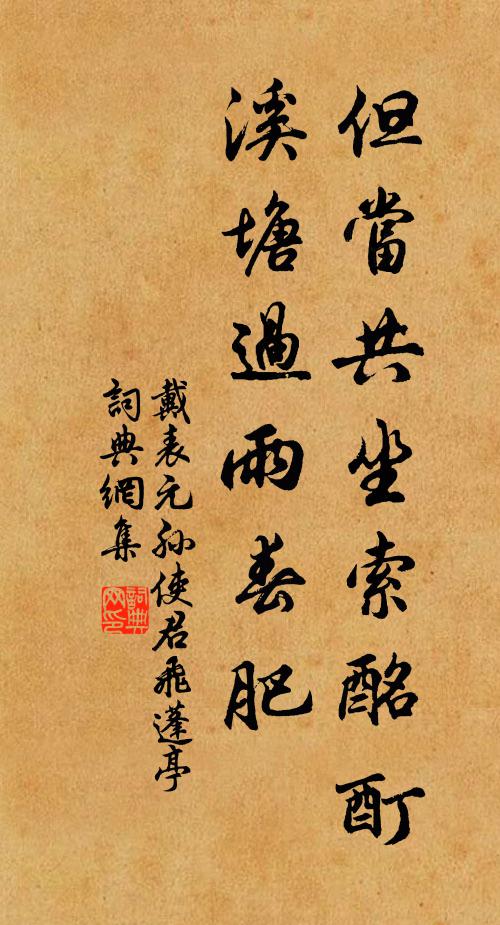 但當共坐索酩酊
溪塘過雨春肥
戴表元孫使君飛蓬亭
詞典網集
詞典網印